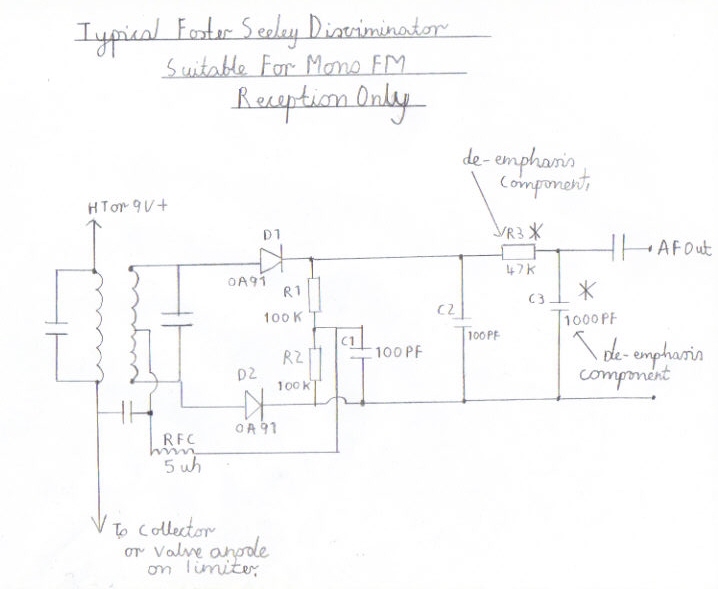 Typical Foster Seeley Discriminator
Suitable For Mono FM
Reception Only
de-emphasis
component,
HT or 9V+
D1
R3 *
AF Out
OA91
47K
R1
C2
C3 *
100K
100PF
1000PF
C1
100PF
R2
de-emphasis
component
D2
100K
OA91
RFC
5uh
To collector
or valve anode
on limiter.